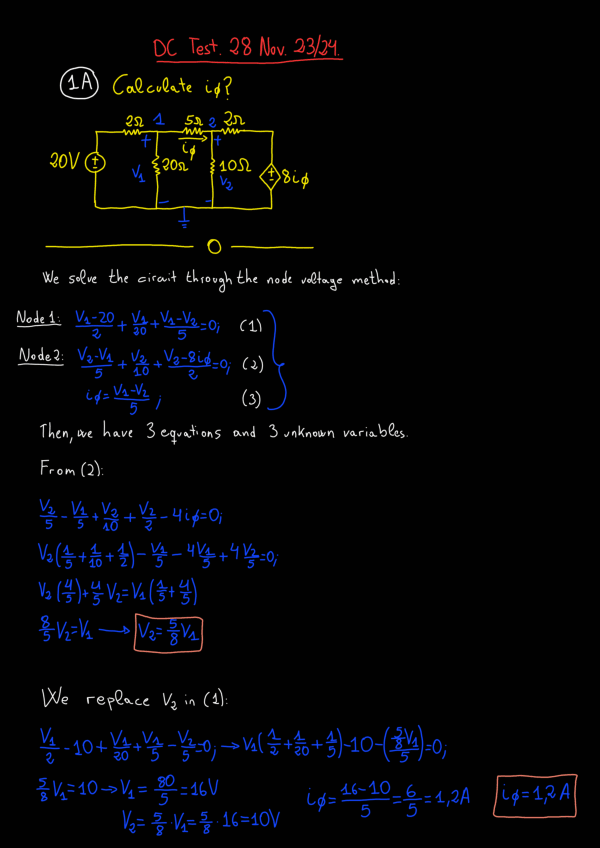 DC Test. 28 Nov. 23/24.
1A Calculate iϕ?
2Ω 1 5Ω 2 2Ω
+ iϕ +
20V V₁ 20Ω 10Ω V₂ 8iϕ
- -
O
We solve the circuit through the node voltage method:
Node 1: (V₁-20)/2 + V₁/20 + (V₁-V₂)/5 = 0; (1)
Node 2: (V₂-V₁)/5 + V₂/10 + (V₂-8iϕ)/2 = 0; (2)
iϕ = (V₁-V₂)/5 ; (3)
Then, we have 3 equations and 3 unknown variables.
From (2):
V₂/5 - V₁/5 + V₂/10 + V₂/2 - 4iϕ = 0;
V₂(1/5 + 1/10 + 1/2) - V₁/5 - 4V₁/5 + 4V₂/5 = 0;
V₂(4/5) + 4/5 V₂ = V₁(1/5 + 4/5)
8/5 V₂ = V₁ → V₂ = 5/8 V₁
We replace V₂ in (1):
V₁/2 - 10 + V₁/20 + V₁/5 - V₂/5 = 0; → V₁(1/2 + 1/20 + 1/5) - 10 - ((5/8 V₁)/5) = 0;
5/8 V₁ = 10 → V₁ = 80/5 = 16V
V₂ = 5/8 · V₁ = 5/8 · 16 = 10V
iϕ = (16-10)/5 = 6/5 = 1,2A
iϕ = 1,2A